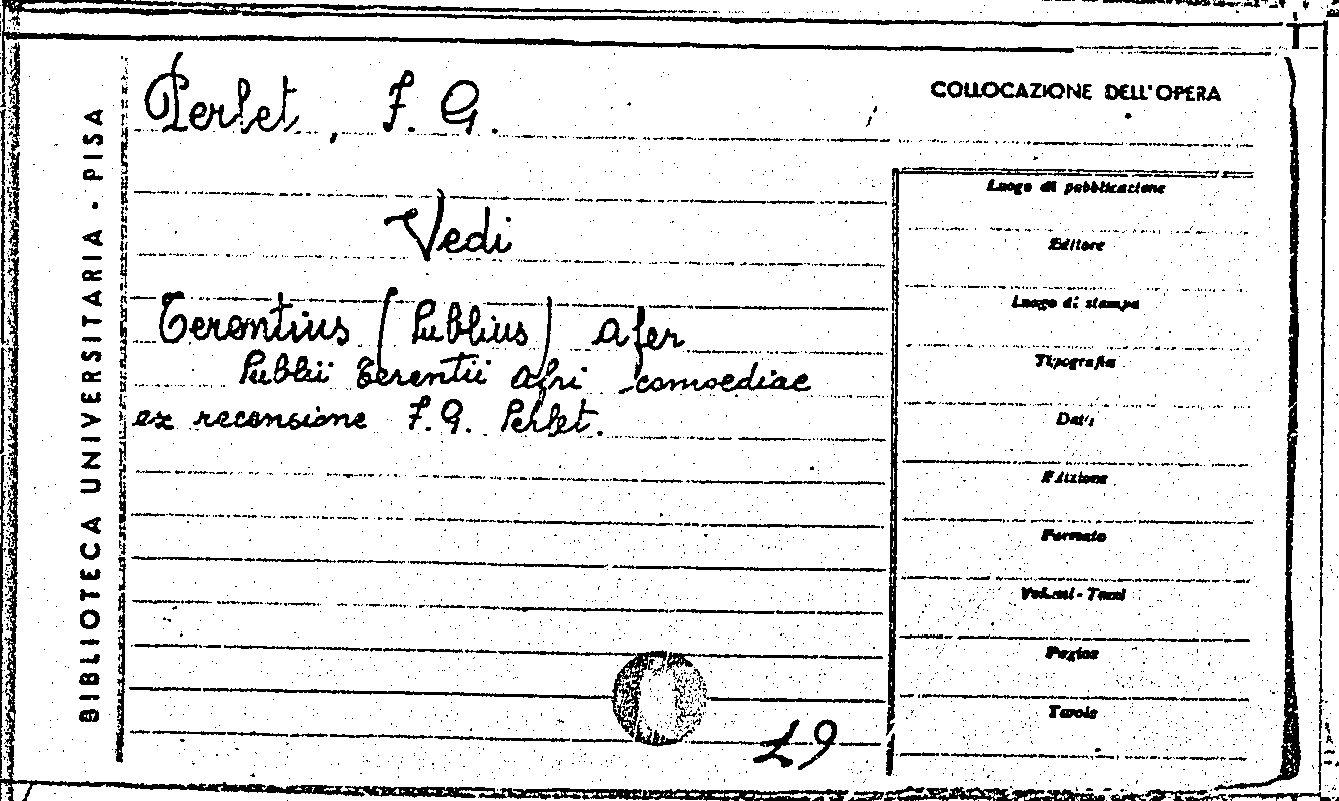 BIBLIOTECA UNIVERSITARIA - PISA
Perlet, F. G.
Vedi
Terentius (Publius) Afer
Publii Terentii Afri comoediae
ex recensione F. G. Perlet.
19
COLLOCAZIONE DELL'OPERA
Luogo di pubblicazione
Editore
Luogo di stampa
Tipografia
Data
Edizione
Formato
Volumi - Tomi
Pagine
Tavole